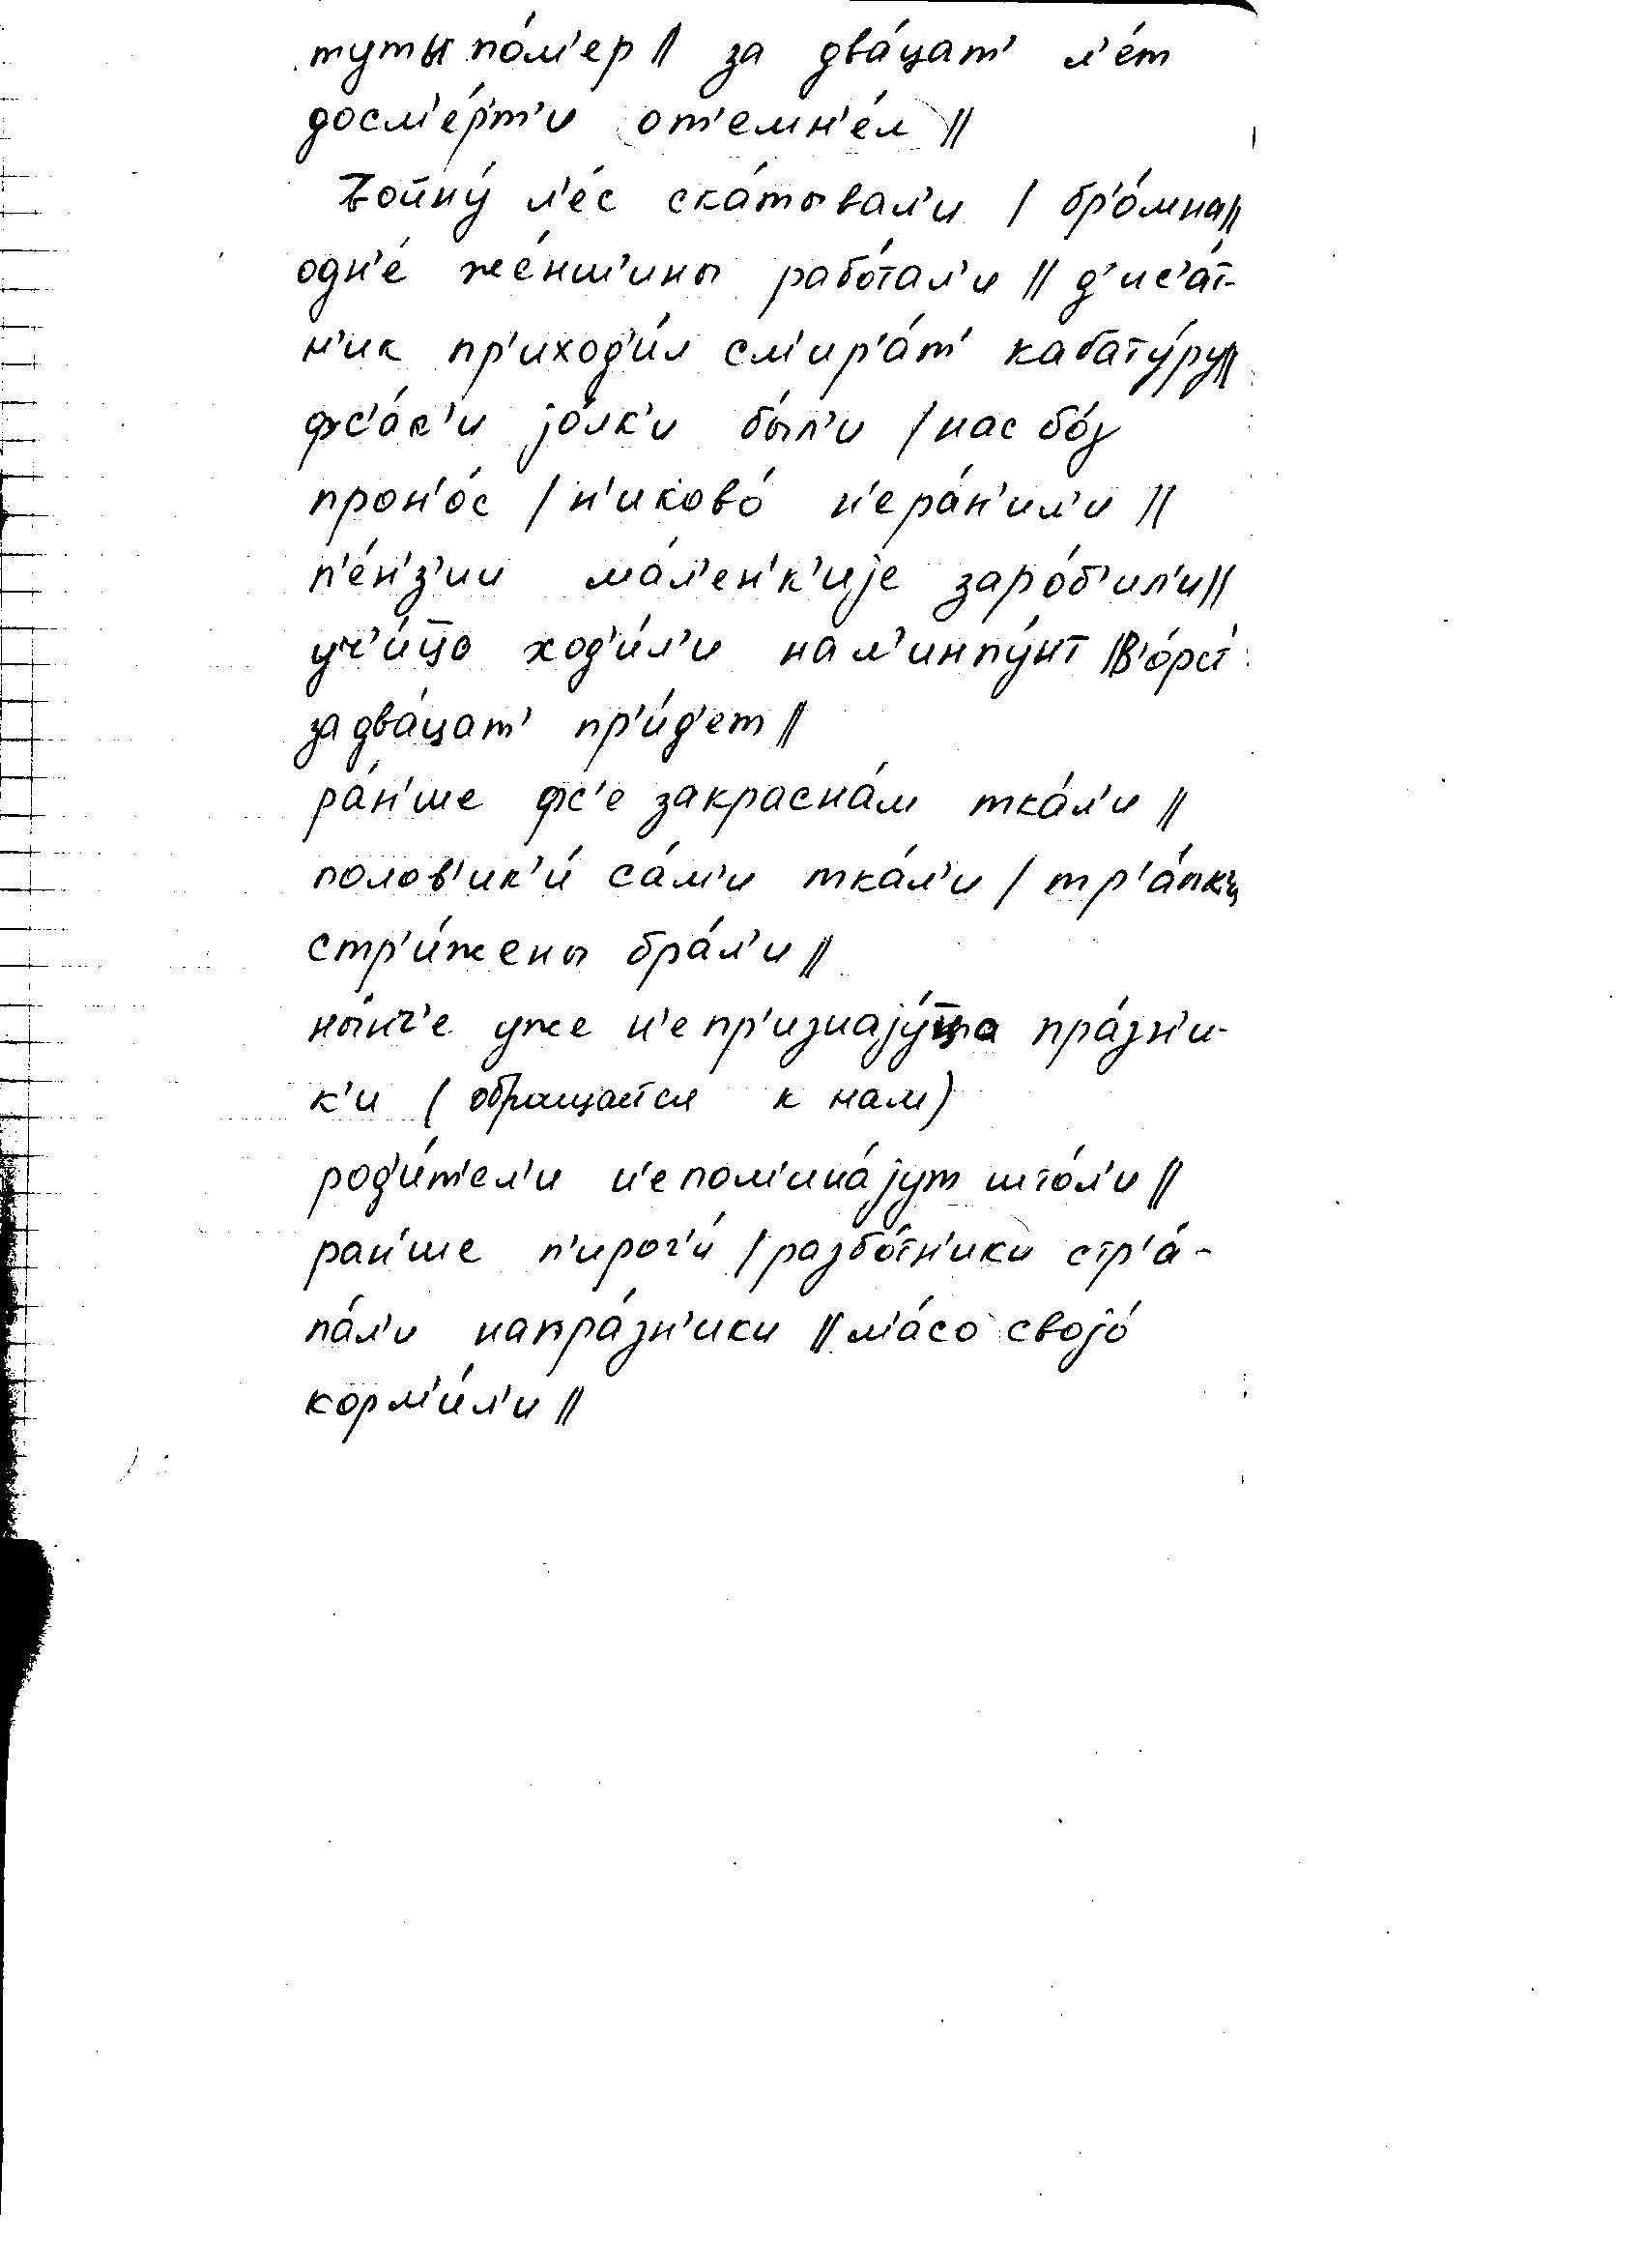 туты по́м'ер // за два́цат' л'е́т
досм'е́рт'и от'емн'е́л //
Войну́ л'е́с ска́тывал'и / бр'о́мна //
одн'е́ же́нш'ины рабо́тал'и // д'ис'а́т-
н'ик пр'иход'и́л см'ир'а́т' кабату́ру //
фс'а́к'и jо́лк'и бы́л'и / нас бо́γ
прон'о́с / н'иково́ н'ера́н'ил'и //
п'е́н'з'ии ма́л'ен'к'ијe заро́б'ил'и //
уч'и́ц̅о ход'и́л'и нал'инпу́нт // в'о́рст
задва́цат' пр'и́д'ет //
ра́н'ше фс'е закросна́м тка́л'и //
полов'ик'и́ са́м'и тка́л'и / тр'а́пки
стр'и́жены бра́л'и //
ны́нч'е уже н'епр'изнају́ц̅а пра́зн'и-
к'и (обращается к нам)
род'и́т'ел'и н'епом'ина́јут што́л'и //
ран'ше п'ирог'и́ / разбо́тники стр'а́-
па́л'и напра́зн'ики // м'а́со својо́
корм'и́л'и //